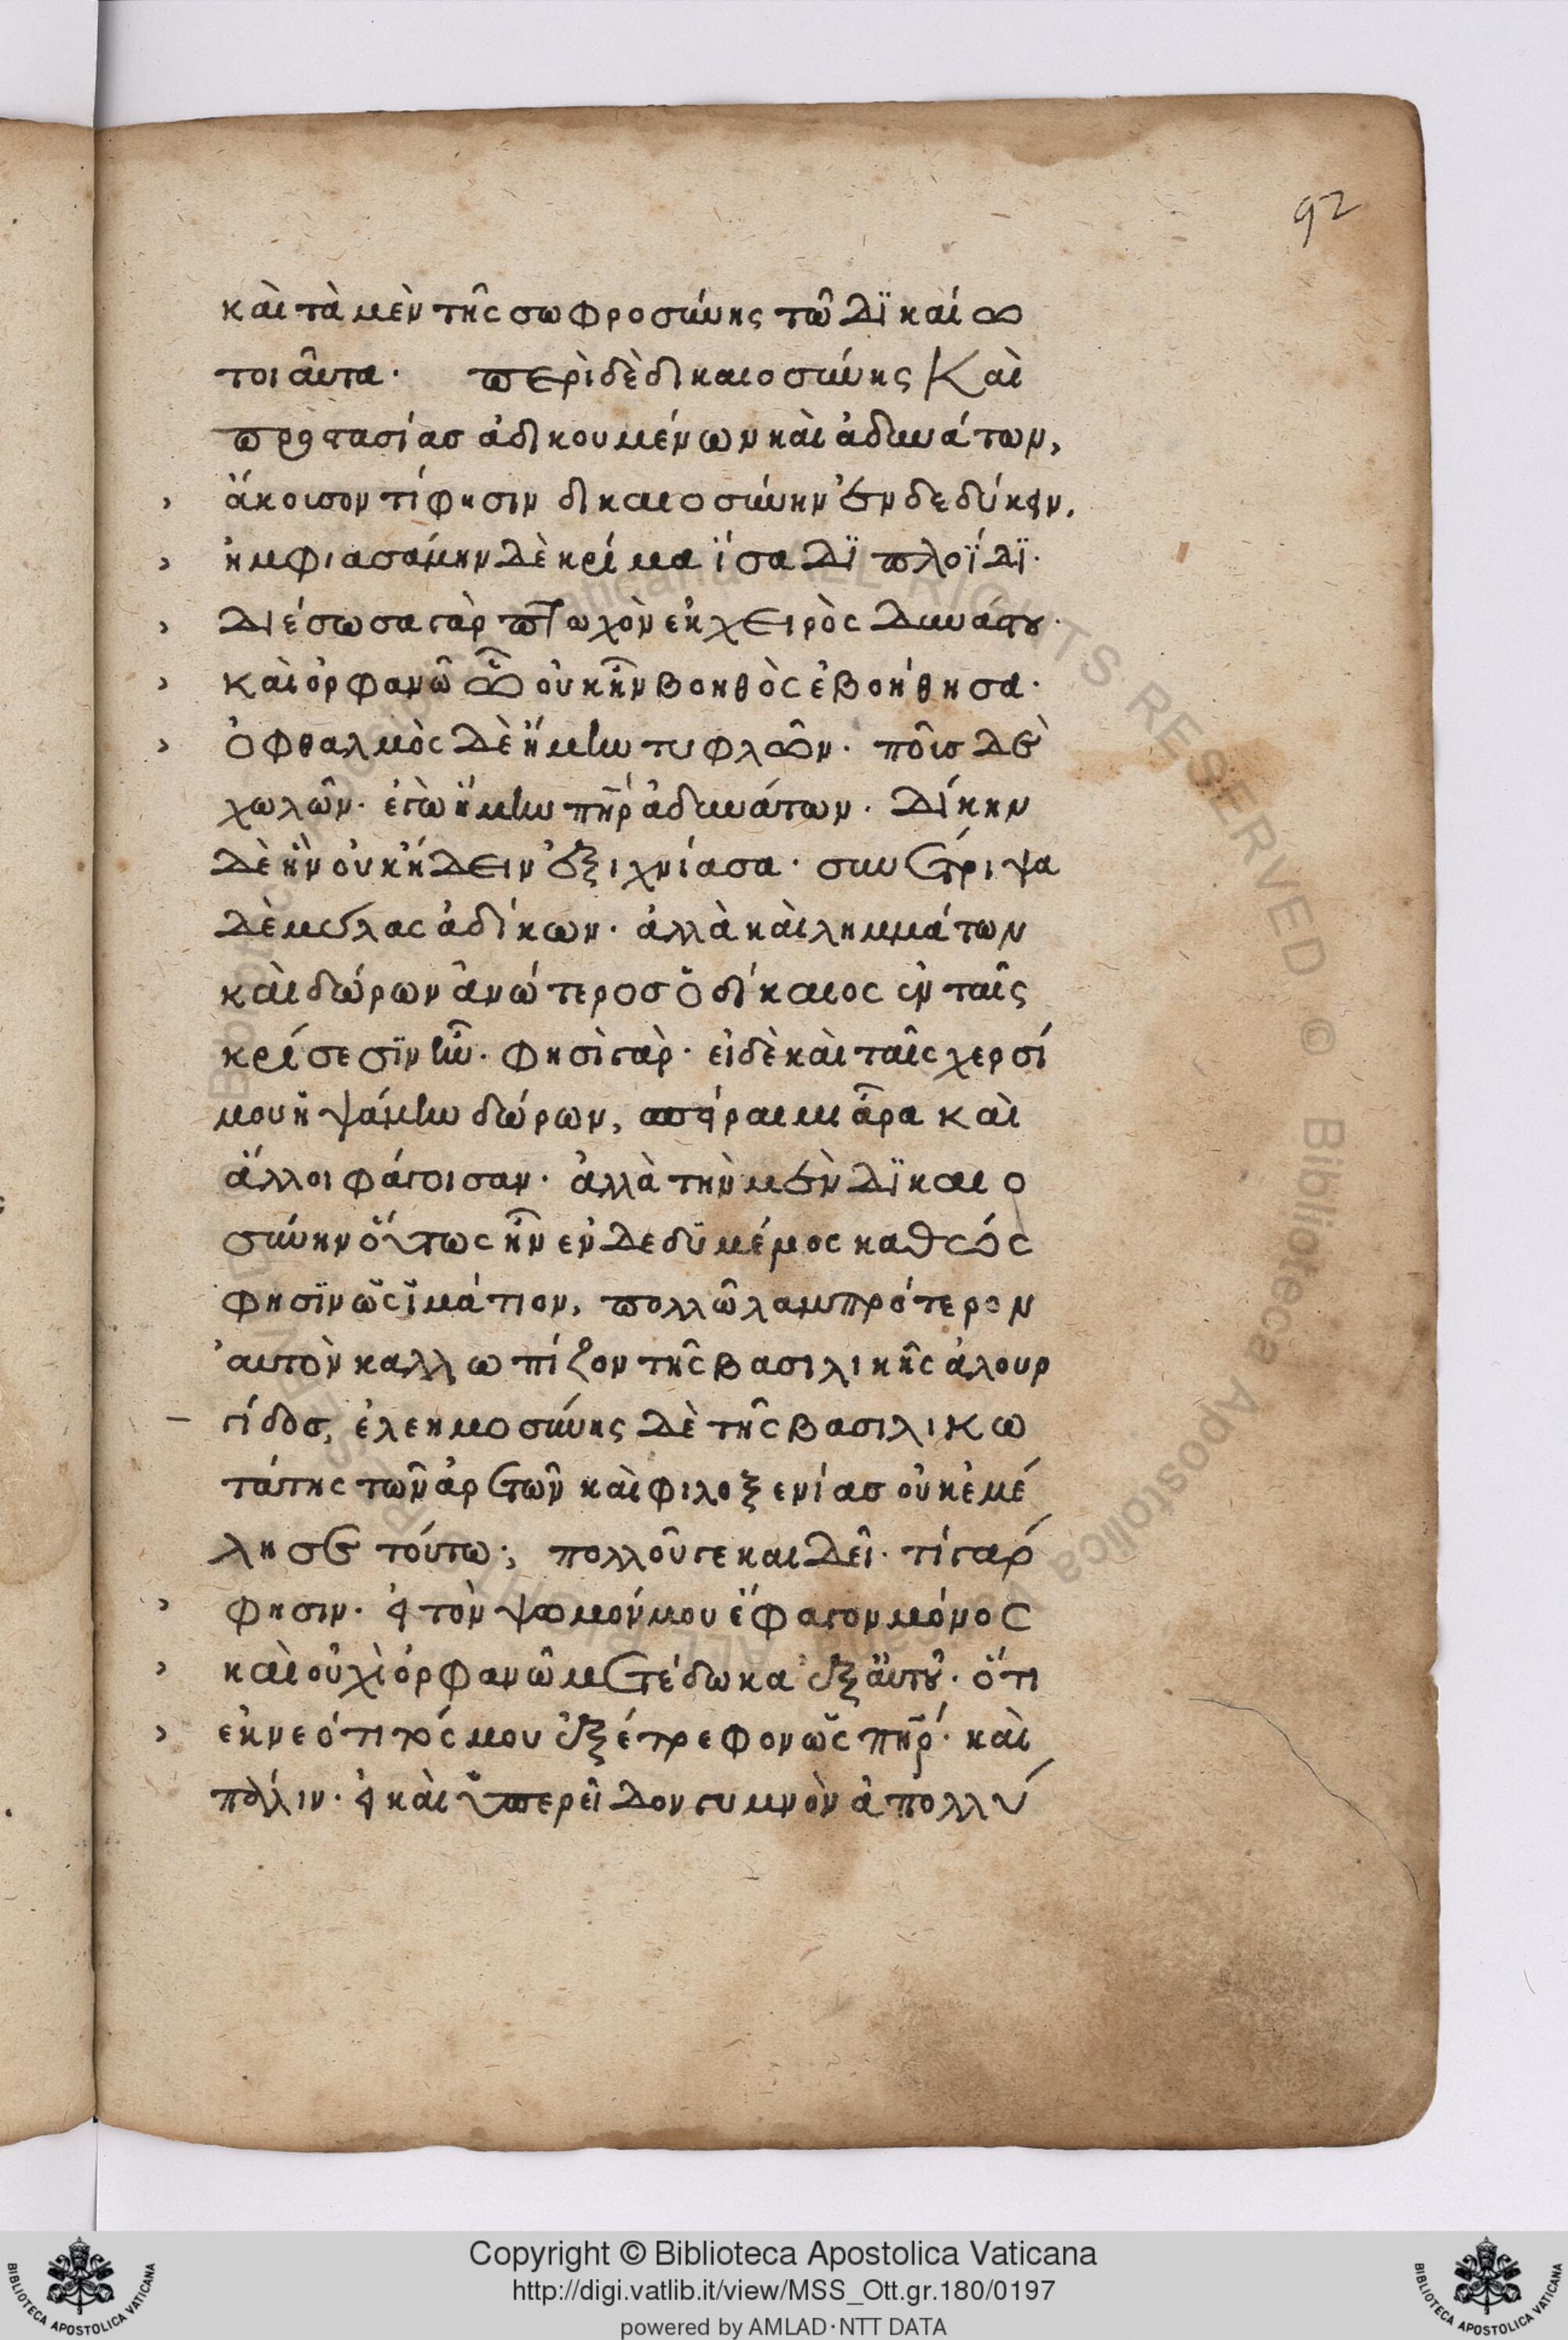 92
καὶ τὰ μὲν τῆς σωφροσύνης τῶ δϊκαίω
τοιαῦτα· περὶ δὲ δικαιοσύνης Καὶ
προστασίασ ἀδικουμένων καὶ ἀδυνάτων,
› ἄκουσον τί φησιν δικαιοσύνην ἐνδεδύκειν.
› ἠμφιασάμην δὲ κρίμα ἴσα δϊπλοΐδϊ·
› Διέσωσα γὰρ πτωχὸν εκ χειρὸς δυνάστου·
› καὶ ὀρφανῶ ὧ οὐκ ἦν βοηθὸς ἐβοήθησα·
› ὀφθαλμὸς δὲ ἤμην τυφλῶν· ποῦσ δὲ
χωλῶν· ἐγὼ ἤμην πῆρ ἀδυνάτων. Δίκην
δὲ ἣν οὐκ ἤδειν ἐξιχνίασα· συνέτριψα
δὲ μύλας ἀδίκων· ἀλλὰ καὶ λημμάτων
καὶ δώρων ἀνώτεροσ ὁ δίκαιος ἐν ταῖς
κρίσεσϊν ἦν· φησὶ γὰρ· εἰ δὲ καὶ ταῖς χερσί
μου ἡψάμην δώρων, σπείραιμι ἄρα καὶ
ἄλλοι φάγοισαν· ἀλλὰ τὴν μὲν δϊκαιο
σύνην οὕτως ἦν ενδεδϋμένος καθὼς
φησϊν ὡς ἱμάτιον, πολλῶ λαμπρότερον
αυτὸν καλλωπίζον τῆς βασιλικῆς ἁλουρ
– γίδοσ, ἐλεημοσύνης δὲ τῆς βασιλικω
τάτης τῶν ἀρετῶν καὶ φιλοξενίασ οὐκ ἐμέ
λησε τούτω; πολλοῦ γε και δεῖ· τί γαρ
› φησιν· εἰ τὸν ψωμόν μου ἔφαγον μόνος
› καὶ οὐχὶ ὀρφανῶ μετέδωκα ἐξ αὐτοῦ· ὅτι
› εκ νεότητός μου ἐξέτρεφον ὡς πῆρ· καὶ
πάλιν· εἰ καὶ ὑπερεῖδον γυμνὸν ἀπολλύ
Copyright © Biblioteca Apostolica Vaticana
http://digi.vatlib.it/view/MSS_Ott.gr.180/0197
powered by AMLAD·NTT DATA
BIBLIOTECA APOSTOLICA VATICANA
BIBLIOTECA APOSTOLICA VATICANA